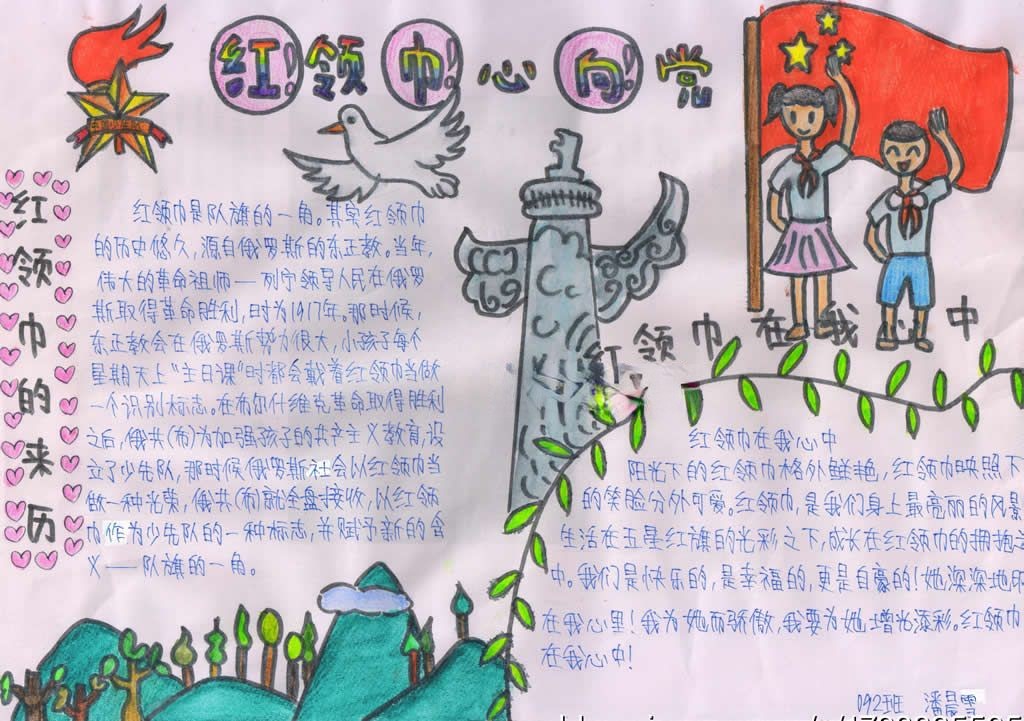 红!领巾!心向!党
红领巾的来历
红领巾是队旗的一角。其实红领巾
的历史悠久,源自俄罗斯的东正教。当年,
伟大的革命祖师——列宁领导人民在俄罗
斯取得革命胜利,时为1917年。那时候,
东正教会在俄罗斯势力很大,小孩子每个
星期天上“主日课”时都会戴着红领巾当做
一个识别标志。在布尔什维克革命取得胜利
之后,俄共(布)为加强孩子的共产主义教育,设
立了少先队,那时候俄罗斯社会以红领巾当
做一种光荣,俄共(布)就全盘接收,以红领
巾作为少先队的一种标志,并赋予新的含
义——队旗的一角。
红领巾在我心中
红领巾在我心中
阳光下的红领巾格外鲜艳,红领巾映照下
的笑脸分外可爱。红领巾,是我们身上最亮丽的风景
生活在五星红旗的光彩之下,成长在红领巾的拥抱之
中。我们是快乐的,是幸福的,更是自豪的!她深深地印
在我心里!我为她而骄傲,我要为她增光添彩。红领巾
在我心中!
092班 潘晨雪